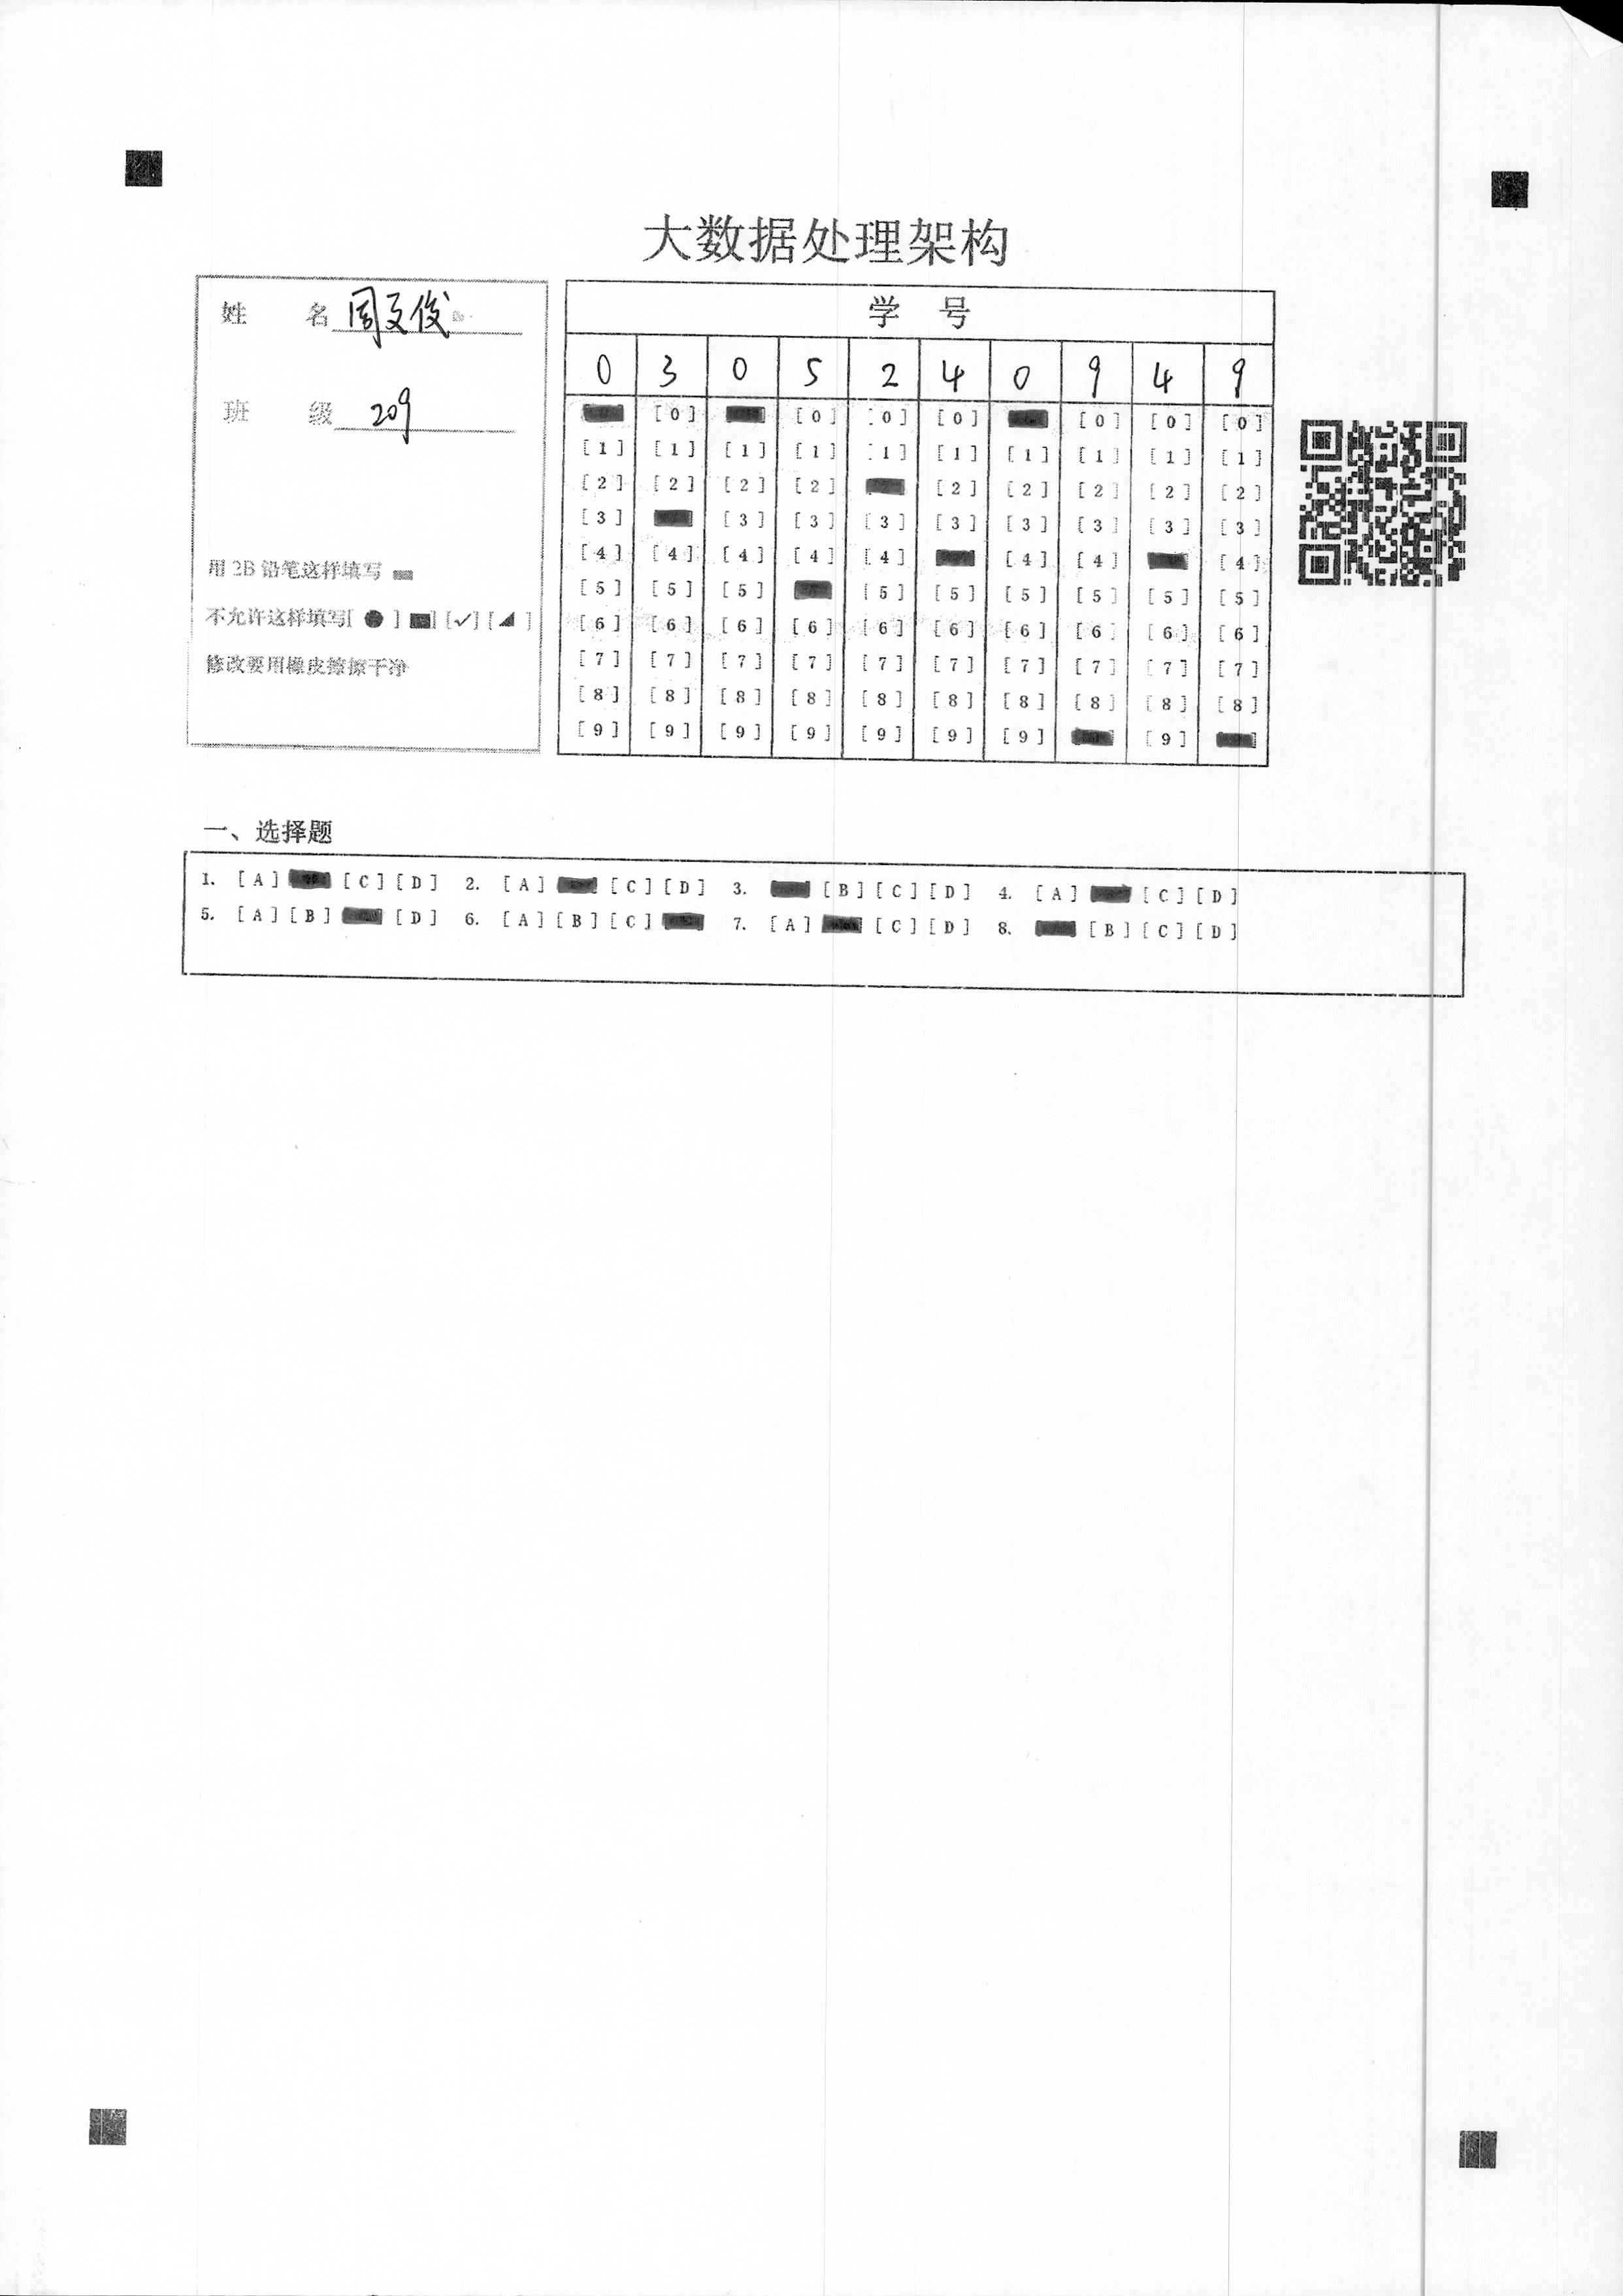 大数据处理架构
姓 名 周文俊
班 级 209
用 2B 铅笔这样填写
不允许这样填写[ ● ] ■] [✓] [◢ ]
修改要用橡皮擦擦干净
学 号
0 3 0 5 2 4 0 9 4 9
[0] [0] [0] [0] [0] [0] [0]
[1] [1] [1] [1] [1] [1] [1] [1] [1] [1]
[2] [2] [2] [2] [2] [2] [2] [2] [2]
[3] [3] [3] [3] [3] [3] [3] [3] [3]
[4] [4] [4] [4] [4] [4] [4] [4]
[5] [5] [5] [5] [5] [5] [5] [5] [5]
[6] [6] [6] [6] [6] [6] [6] [6] [6] [6]
[7] [7] [7] [7] [7] [7] [7] [7] [7] [7]
[8] [8] [8] [8] [8] [8] [8] [8] [8] [8]
[9] [9] [9] [9] [9] [9] [9] [9]
一、选择题
1. [A] [C] [D] 2. [A] [C] [D] 3. [B] [C] [D] 4. [A] [C] [D]
5. [A] [B] [D] 6. [A] [B] [C] 7. [A] [C] [D] 8. [B] [C] [D]